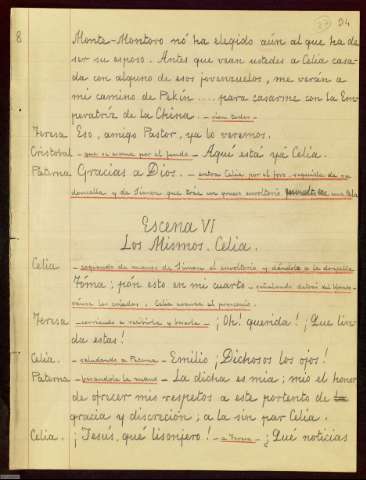 27 24
8 Monte-Montoro nó ha elegido aún al que ha de
ser su esposo. Antes que vean ustedes a Celia casa-
da con alguno de esos jovenzuelos, me verán a
mi camino de Pekín .... para casarme con la Em-
peratriz de la China. - rien todos -
Teresa Eso, amigo Pastor, ya lo veremos.
Cristobal - que se asoma por el fondo - Aquí está yá Celia.
Paterna Gracias a Dios. - entra Celia por el foro seguida de su
doncella y de Simon que trae un grueso envoltorio
Escena VI
Los Mismos. Celia.
Celia - cogiendo de manos de Simon el envoltorio y dándolo a la doncella
Tóma; pón esto en mi cuarto -
Celia avanza al proscenio.
Teresa - corriendo a recibirla y besarla - ¡Oh! querida! ¡Que lin-
da estas!
Celia. - saludando a Paterna - Emilio ¡Dichosos los ojos!
Paterna - besandole la mano - La dicha es mia; mio el honor
de ofrecer mis respetos a este portento de
gracia y discreción; a la sin par Celia.
Celia. ¡Jesús, qué lisonjero! - a Teresa - ¡Qué noticias